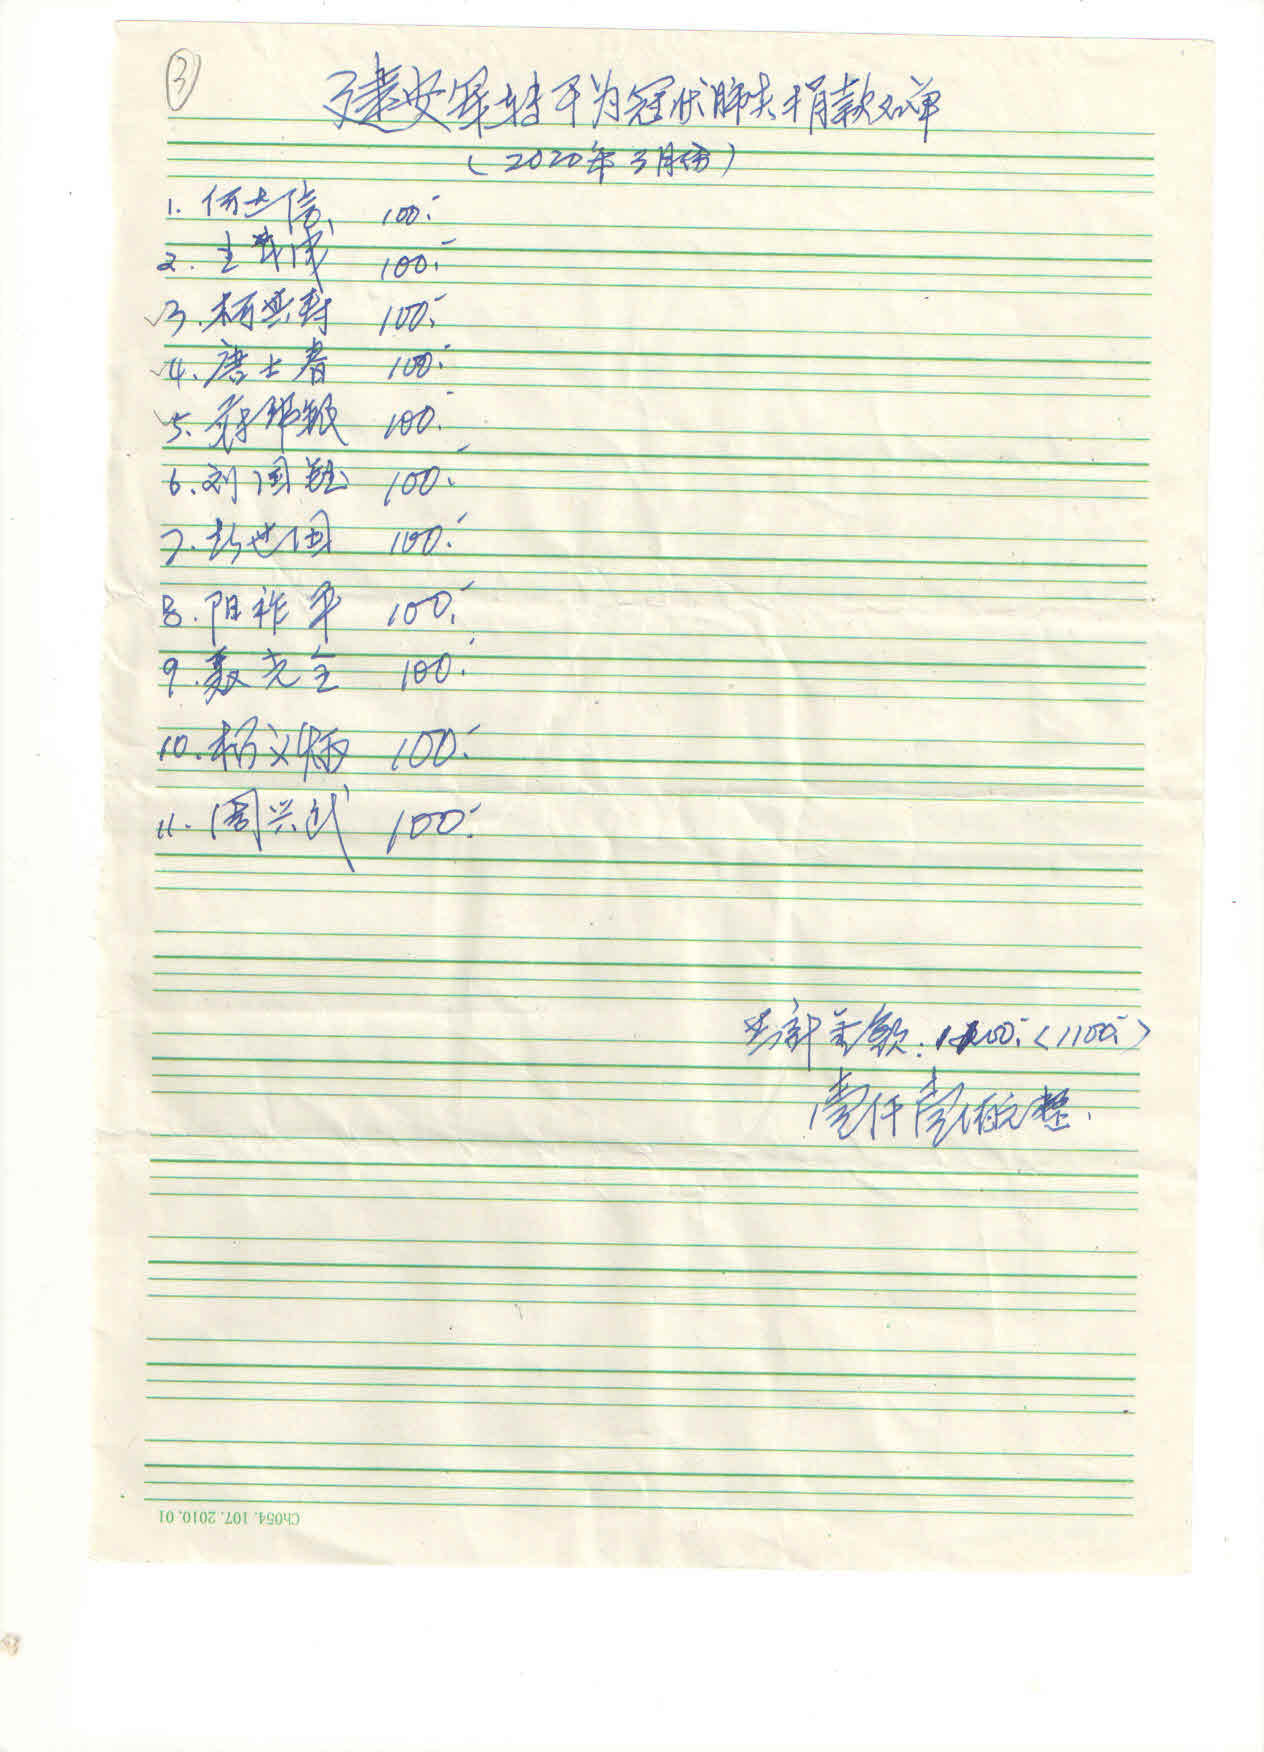 ③
建安军转干为冠状肺炎捐款名单
(2020年3月份)
1. 何世信 100.-
2. 王茂成 100.-
3. 柯贤村 100.-
4. 唐士春 100.-
5. 邦银 100.-
6. 刘国钰 100.-
7. 彭世国 100.-
8. 阳祚平 100.-
9. 聂克全 100.-
10. 杨义炳 100.-
11. 周兴武 100.-
共计金额: 1100.- (1100.-)
壹仟壹佰元整.
Ch054.107.2010.01